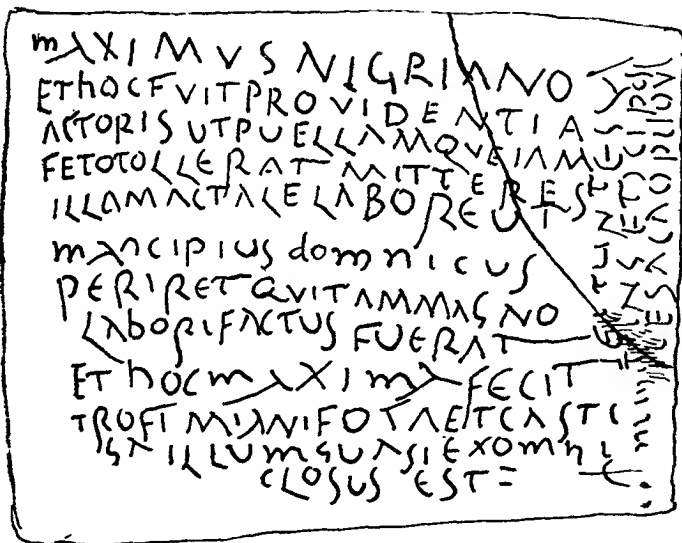 MAXIMVS NIGRIANO
ET HOC FVIT PROVIDENTIA
ACTORIS UT PUELLAM QVE IAM
FETO TOLLERAT MITTERES
ILLAM AC TALE LABORE UT
MANCIPIUS DOMNICUS
PERIRET QVI TAM MAGNO
LABORI FACTUS FUERAT
ET HOC MAXIMA FECIT
TROFIMIANI FOTA ET CASTI
GA ILLUM QUASI EX OMNI
CLOSUS EST